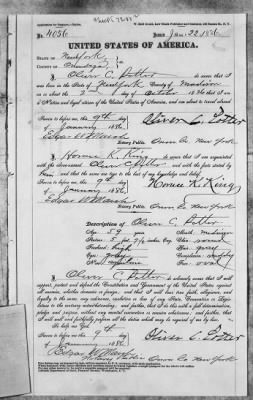 No. 4036
Issued Jan. 22 1886
UNITED STATES OF AMERICA.
STATE OF New York
COUNTY OF Onondaga
I, Oliver C. Potter do swear that I
was born in the State of New York County of Madison
on or about the day of October 1826 that I am
a Native and loyal citizen of the United States of America, and am about to travel abroad
Sworn to before me, this 9th day
of January 1886
Oliver C. Potter
Notary Public Onon Co New York
I, Horace K. King do swear that I am acquainted
with the above-named Oliver C. Potter and with the facts stated by
him, and that the same are true to the best of my knowledge and belief.
Sworn to before me, this 9th day
of January 1886
Horace K. King
Notary Public Onon Co New York
Description of Oliver C. Potter
Age: 59 years
Mouth: medium
Stature: 5 feet
Chin: round
Forehead: high
Hair:
Eyes: gray
Complexion:
Nose:
Face: oval
I, Oliver C. Potter do solemnly swear that I will
support, protect and defend the Constitution and Government of the United States against
all enemies, whether domestic or foreign; and that I will bear true faith, allegiance, and
loyalty to the same, any ordinance, resolution or law of any State, Convention or Legislature
to the contrary notwithstanding; and further, that I do this with a full determination,
pledge and purpose, without any mental reservation or evasion whatsoever; and further, that
I will well and faithfully perform all the duties which may be required of me by law.
So help me God.
Sworn to before me, this 9th day
of January 1886
Oliver C. Potter
Notary Public Onon Co New York